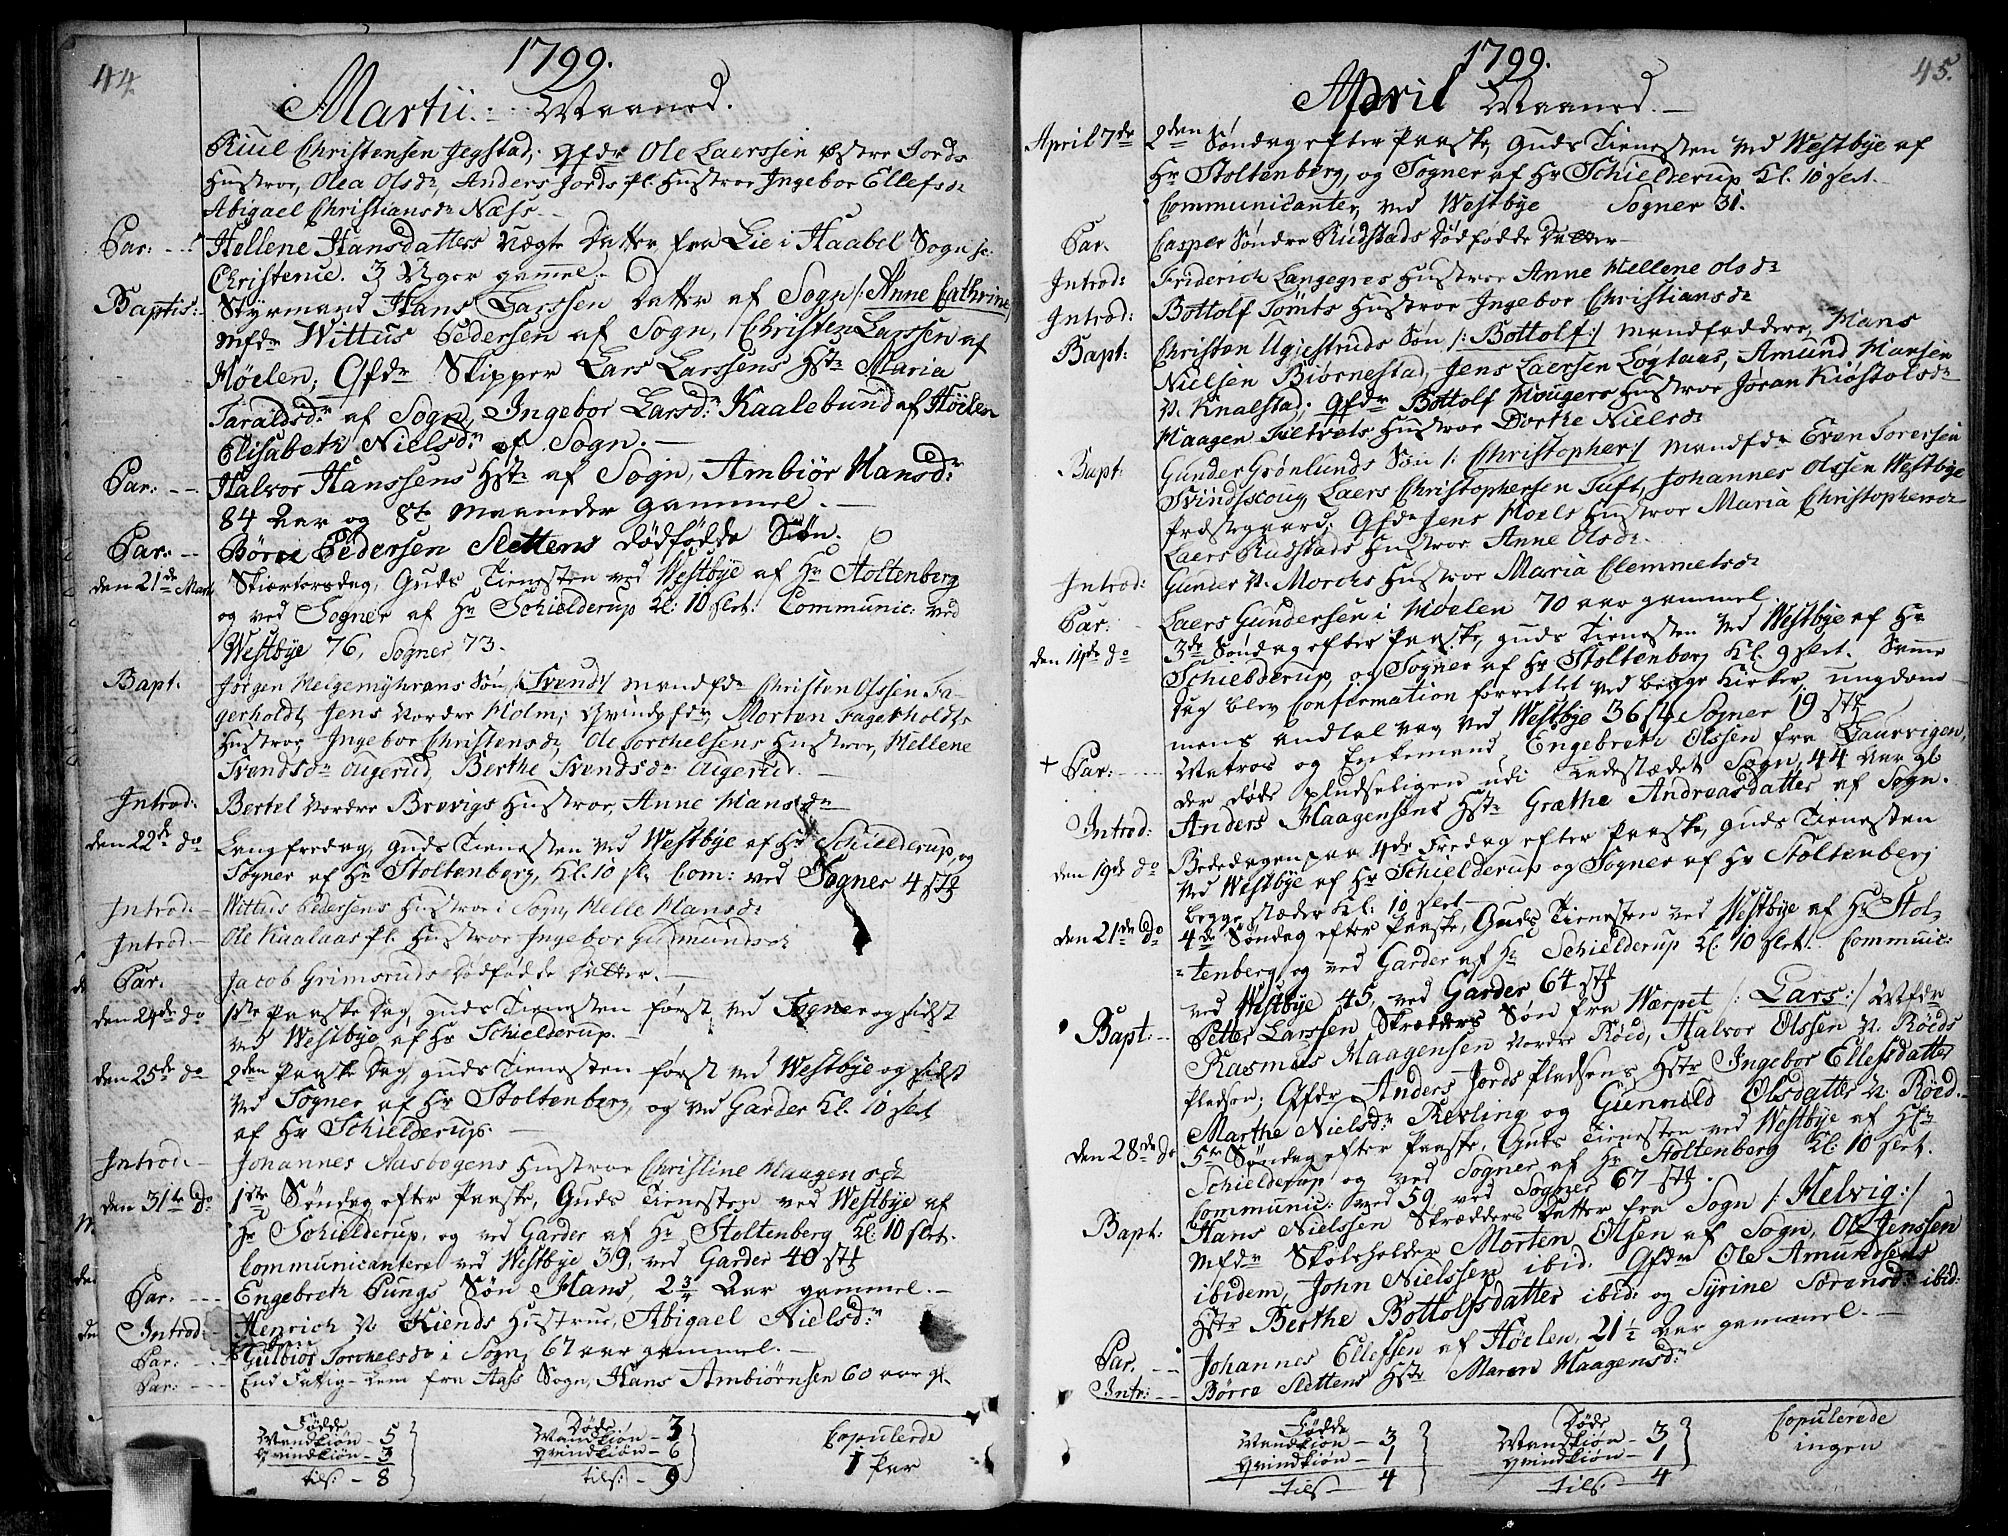 44.
1799.
Martii. Maaned.
Christensen Jegstad; Qfdr Ole Laerssen østre Jords
Hustroe, Olea Olsdr, Anders Jords Pl. Hustroe Ingebor Ellefsdr
Abigael Christiansdr Næss.
Par: Hellene Hansdatters uægte Datter fra Lie i Haabel Sogn
Christence. 3 Uger gammel.
Baptis: Styrmand Hans Larssen Datter af Sogn /: Anne Cathrine
Mfdr Wittus Pedersen af Sogn, Christen Larssen af
Høelen; Qfdr Skipper Lars Larssens Hstr Maria
Taraldsdr af Sogn, Ingebor Larsdr Kaalebund af Høelen
Elisabeth Nielsdr af Sogn.
Par: Halvor Hanssens Hstr af Sogn, Ambiør Hansdr
84 Aar og 8te Maaneder gammel.
Par: Børre Pedersen Slettens dødfødde Søn.
den 21de Marti Skiærtorsdag, Guds Tienesten ved Westbye af Hr Stoltenberg
og ved Sogner af Hr Schielderup Kl: 10 slet. Communic: ved
Westbye 76, Sogner 73.
Bapt. Jørgen Helgemyhrens Søn /: Svend :/ Mandfdr Christen Olssen Fa-
gerholdt, Jens Nordre Holm; Qvindefdr, Morten Fagerholdts
Hustroe Ingebor Christensdr, Ole Torchelsens Hustroe, Hellene
Svendsdr Augerud, Berthe Svendsdr Augerud.
Introd: Bertel Nordre Brevigs Hustroe, Anne Hansdr
den 22de do Langfredag, Guds Tienesten ved Westbye af Hr Schielderup, og
Sogner af Hr Stoltenberg, Kl. 10 sl. Com: ved Sogner 4 stk
Introd: Wittus Pedersens Hustroe i Sogn, Helle Hansdr
Introd. Ole Kaalaas Pl. Hustroe Ingebor Gudmundsdr
Par. Jacob Grimsruds dødfødde Datter.
den 24de do 1ste Paaske Dag, Guds Tienesten først ved Sogner og sidst
ved Westbye af Hr Schielderup.
den 25de do 2den Paaske Dag, Guds Tienesten først ved Westbye og sidst
ved Sogner af Hr Stoltenberg, og ved Garder Kl. 10 slet
af Hr Schielderup.
Introd. Johannes Aasbogens Hustroe Christine Haagensdr
den 31te do 1ste Søndag efter Paaske, Guds Tienesten ved Westbye af
Hr Schielderup, og ved Garder af Hr Stoltenberg Kl: 10 slet.
Communicantere ved Westbye 39, ved Garder 40 stk
Par: Engebreth Pungs Søn Hans, 2 3/4 Aar gammel.
Introd: Henrich N. Kiends Hustrue, Abigael Nielsdr
Par: Gulbiør Torchelsdr i Sogn, 67 aar gammel.
Par: End Fattig-Lem fra Aass Sogn, Hans Ambiørnsen 60 aar gl.
Fødde Døde Copulerde
Mandkiøn - 5 Mandkiøn - 3 1 Par
Qvindkiøn - 3 Qvindkiøn - 6
tils: - 8 tils: - 9
45.
1799.
April Maaned.
April 7de 2den Søndag efter Paaske, Guds Tienesten ved Westbye af
Hr Stoltenberg, og Sogner af Hr Schielderup Kl. 10 slet.
Communicanter, ved Westbye Sogner 31.
Par. Casper Søndre Rudstads dødfødde Datter
Introd: Friderich Langegres Hustroe Anne Hellene Olsdr
Introd: Bottolf Tømts Hustroe Ingebor Christiansdr
Bapt: Christen Ugiestruds Søn /: Bottolf :/ Mandfaddere, Hans
Nielsen Biørnestad, Jens Laersen Logtaas, Amund Hansen
N. Knalstad; Qfdr Bottolf Hougers Hustroe Jøran Kiøstolsdr
Haagen Hustroe Dorthe Nielsdr
Bapt: Gunder Grønlunds Søn /: Christopher :/ Mandfdr Even Torersen
Svindscoug, Laers Christophersen Tuft, Johannes Olssen Westbye
Præstegaard; Qfdr Jens Hoels Hustroe Maria Christophersdr
Laers Rudstads Hustroe Anne Olsdr.
Introd: Gunder N. Morchs Hustroe Maria Clemmetsdr
Par: Laers Gundersen i Høelen 70 aar gammel
den 14de do 3de Søndag efter Paaske, Guds Tienesten ved Westbye af Hr
Schielderup, og Sogner af Hr Stoltenberg Kl. 9 slet. Samme
Dag blev Confirmation forrettet ved begge Kirker, ungdom-
mens Andtal var ved Westbye 36 stk Sogner 19 stk
+ Par: Matros og Enkemand Engebreth Olssen fra Laurvigen,
der døde pludseligen udi Ladestædet Sogn, 44 Aar gl
Introd: Anders Haagensens Hstr Græthe Andreasdatter af Sogn.
den 19de do Bededagen paa 4de Fredag efter Paaske, Guds Tienesten
ved Westbye af Hr Schielderup og Sogner af Hr Stoltenberg
begge stæder Kl. 10 slet
den 21de do 4de Søndag efter Paaske, Guds Tienesten ved Westbye af Hr Stol-
tenberg, og ved Garder af Hr Schielderup Kl: 10 slet. Communic:
ved Westbye 45, ved Garder 64 stk
Bapt: Petter Larssen Skrædders Søn fra Værpet /: Lars :/ Mfdr
Rasmus Haagensen Nordre Røed, Halvor Olssen N. Røeds
Pladsen; Qfdr Anders Jords Pladsens Hstr Ingebor Ellefsdatter
Marthe Nielsdr Revling og Gunnild Olsdatter N. Røed.
den 28de do 5te Søndag efter Paaske, Guds Tienesten ved Westbye af Hr
Schielderup og ved Sogner af Hr Stoltenberg Kl: 10 slet.
Communic: ved 59 ved Sogner 67 stk.
Bapt: Hans Nielssen Skrædders Datter fra Sogn /: Helvig :/
Mfdr Skoleholder Morten Olsen af Sogn, Ole Jenssen
ibidem, John Nielssen ibid. Qfdr Ole Amundsens
Hstr Berthe Bottolfsdatter ibid: og Syrine Sørensdr ibid:
Par. Johannes Ellefsen af Høelen, 21 1/2 Aar gammel.
Intr: Børre Slettens Hstr Maren Haagensdr
Fødde Døde Copulerede
Mandkiøn - 3 Mandkiøn - 3 ingen
Qvindkiøn - 1 Qvindkiøn - 1
tils - 4 tils: - 4